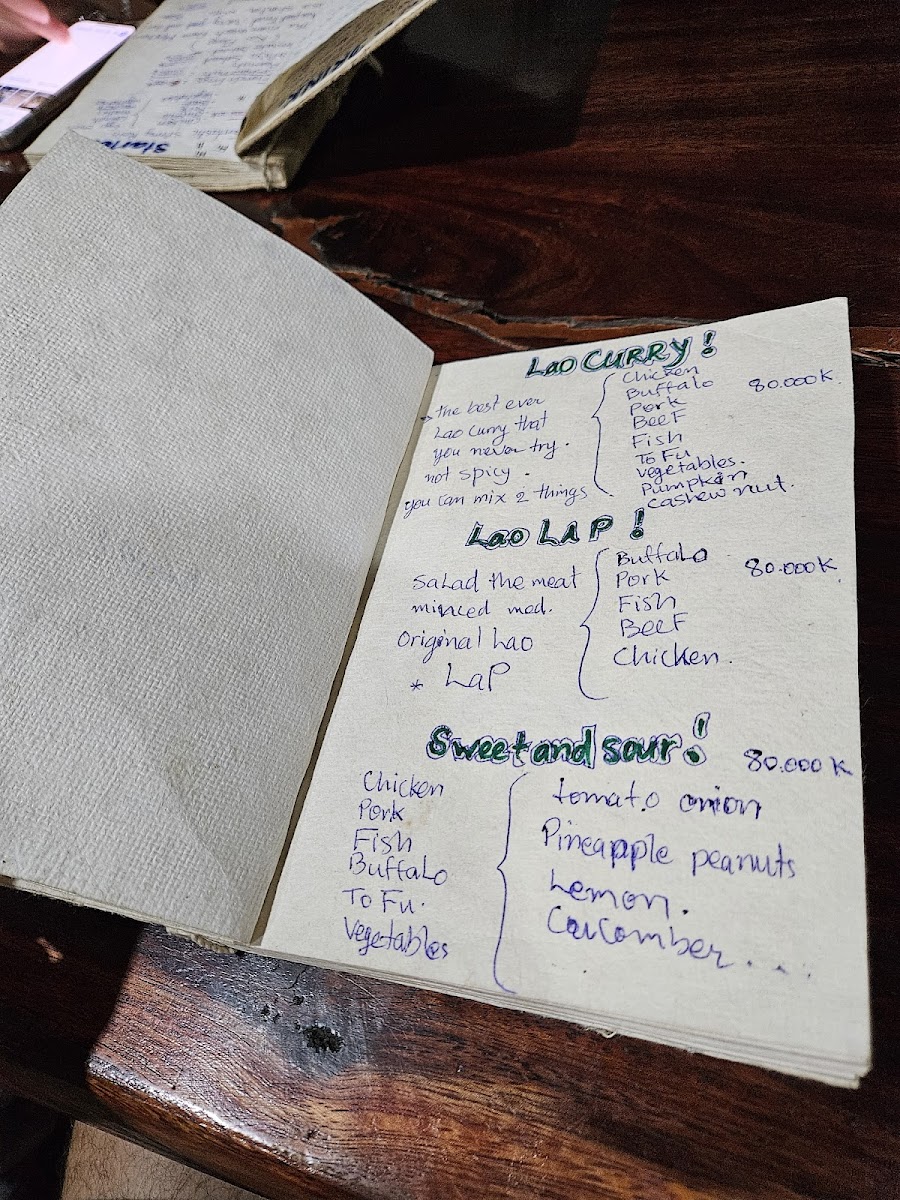 Starte
DRINK
Lao CURRY!
→ the best ever
Lao curry that
you never try.
not spicy.
you can mix 2 things
Chicken
Buffalo
Pork
BeeF
Fish
To Fu
vegetables.
Pumpkin
cashew nut.
80.000K.
Lao LAP!
Salad the meat
minced med.
Original Lao
* LaP
Buffalo
Pork
Fish
BeeF
Chicken.
80.000K
Sweet and sour!
80.000K
Chicken
Pork
Fish
Buffalo
To Fu.
Vegetables
tomato onion
Pineapple peanuts
Lemon.
Caucomber....